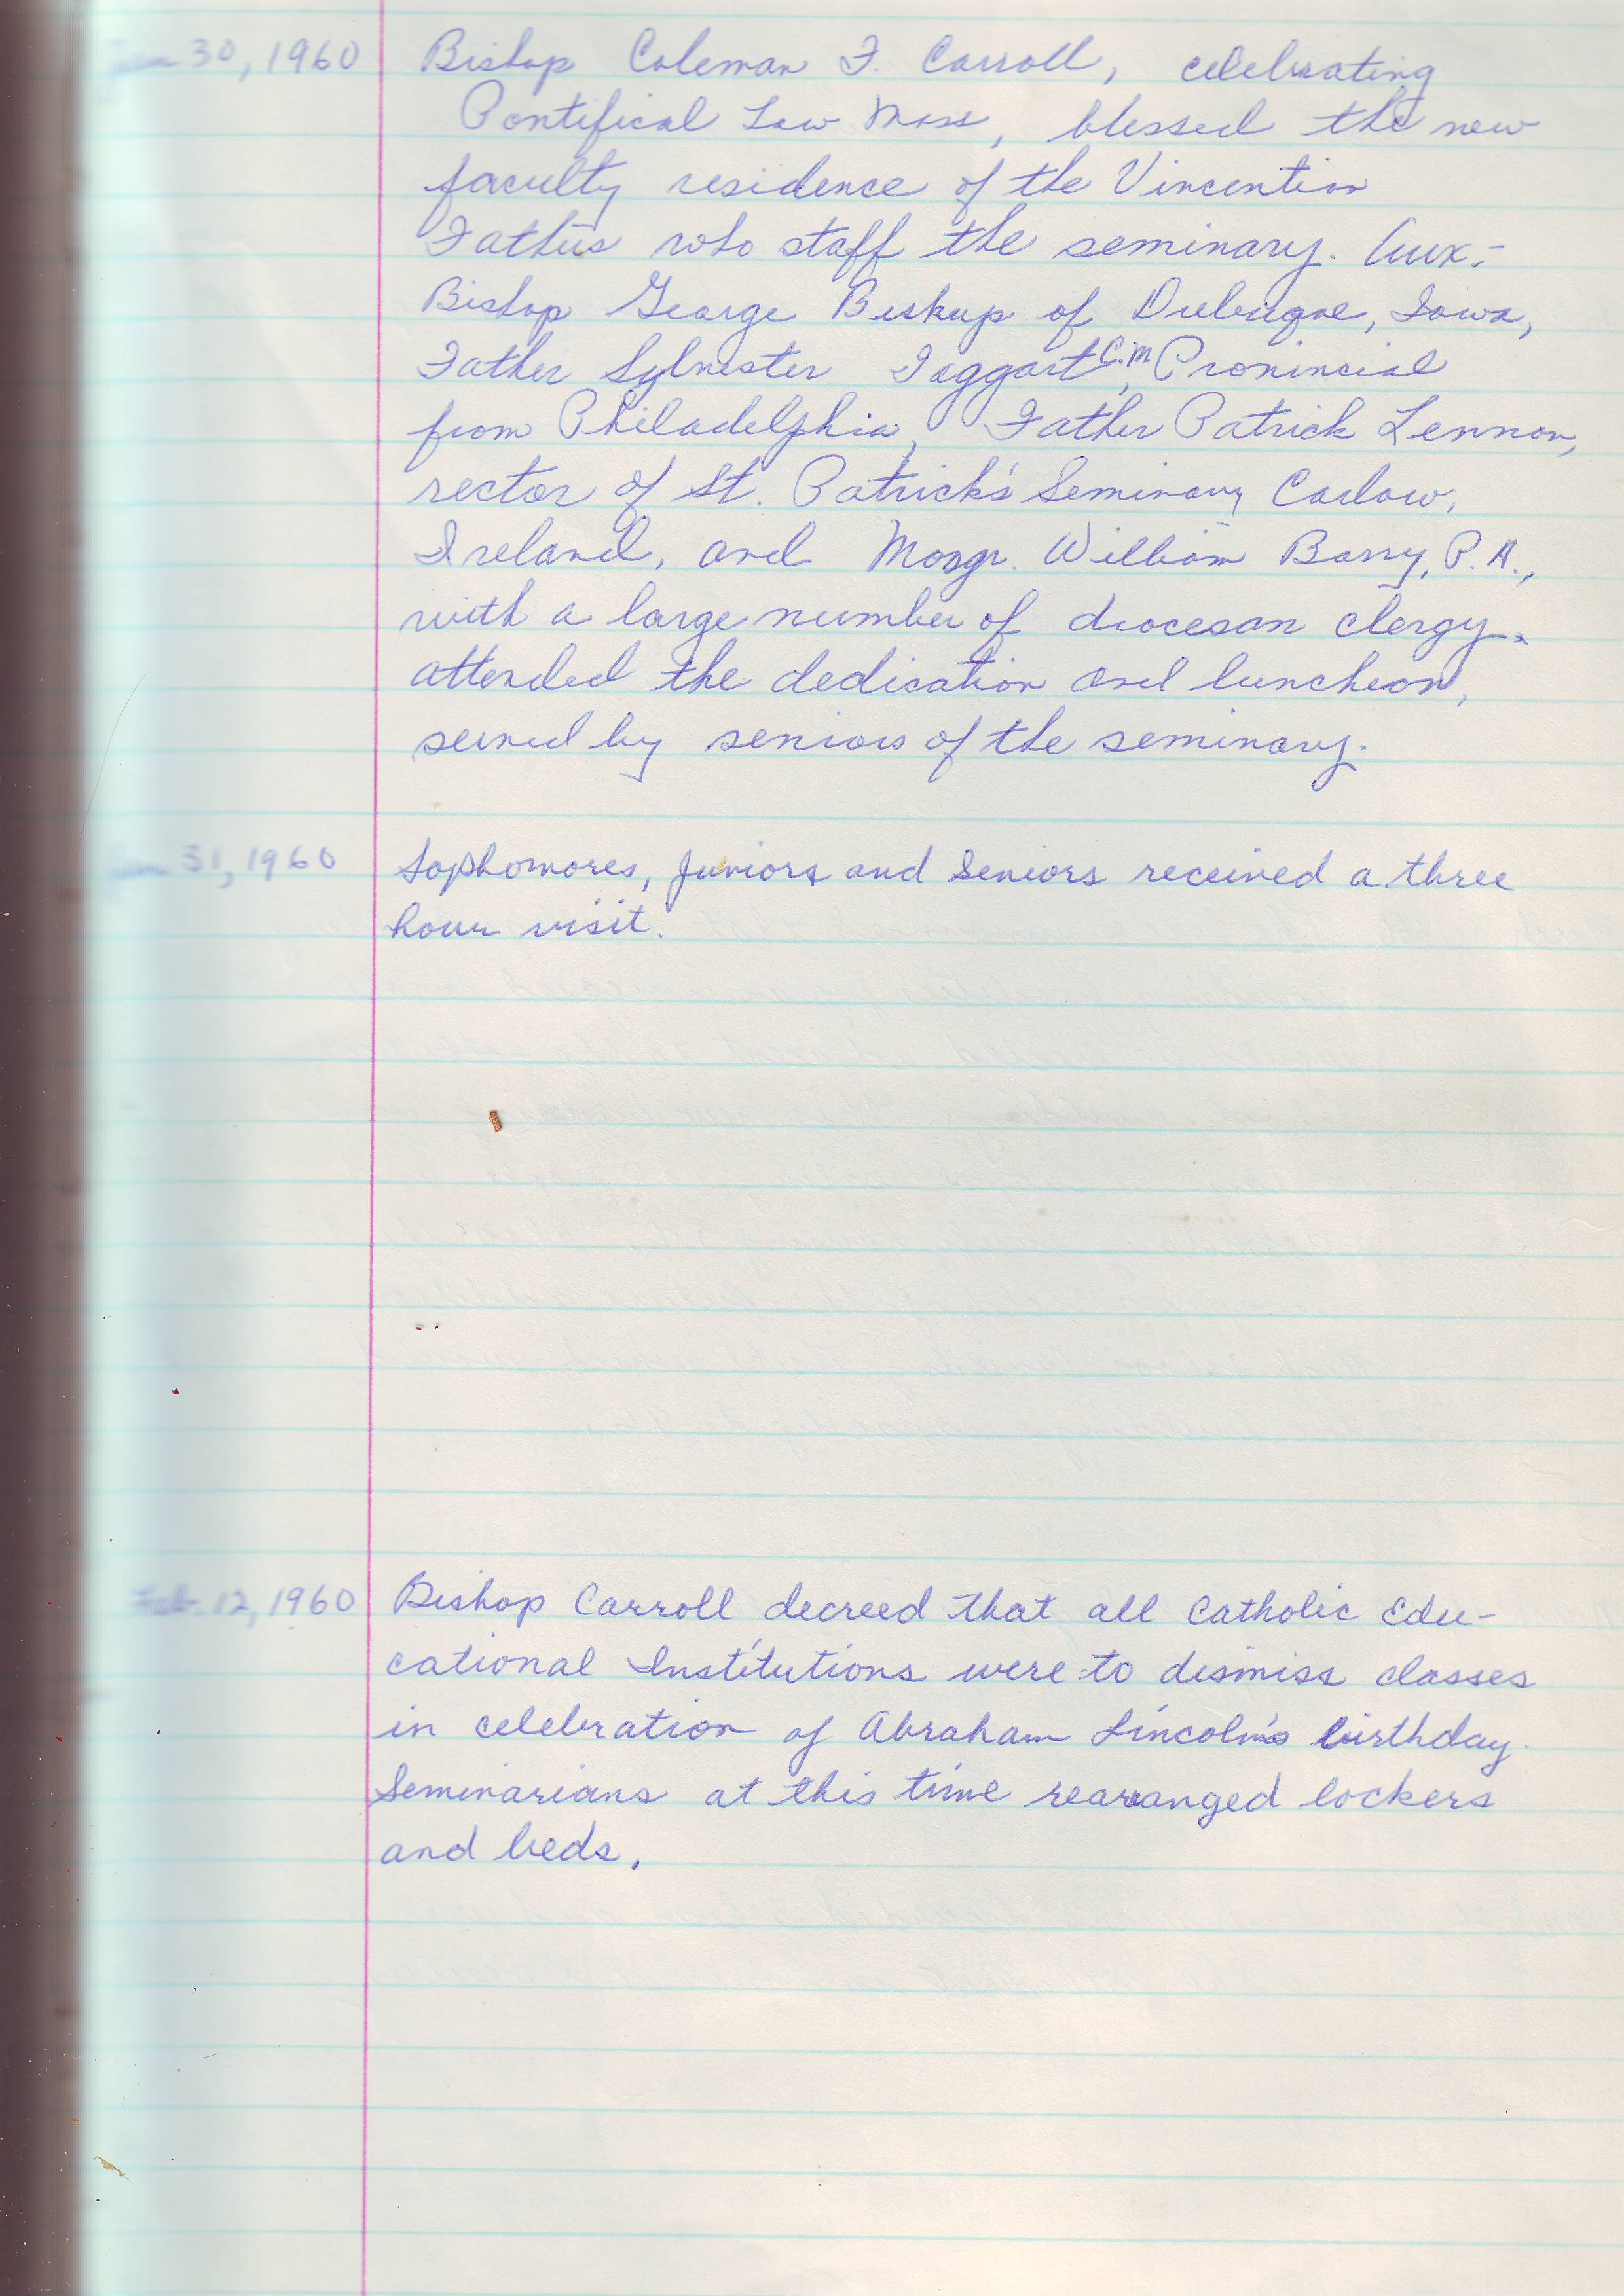 Jan 30, 1960 Bishop Coleman F. Carroll, celebrating
Pontifical Low Mass, blessed the new
faculty residence of the Vincentian
Fathers who staff the seminary. Aux.-
Bishop George Biskup of Dubuque, Iowa,
Father Sylvester Taggart, C.M. Provincial
from Philadelphia, Father Patrick Lennon,
rector of St. Patrick's Seminary Carlow,
Ireland, and Mosgr. William Barry, P.A.,
with a large number of diocesan clergy.
attended the dedication and luncheon,
served by seniors of the seminary.
Jan 31, 1960 Sophomores, Juniors and Seniors received a three
hour visit.
Feb. 12, 1960 Bishop Carroll decreed that all Catholic Edu-
cational Institutions were to dismiss classes
in celebration of Abraham Lincoln's birthday.
Seminarians at this time rearranged lockers
and beds.